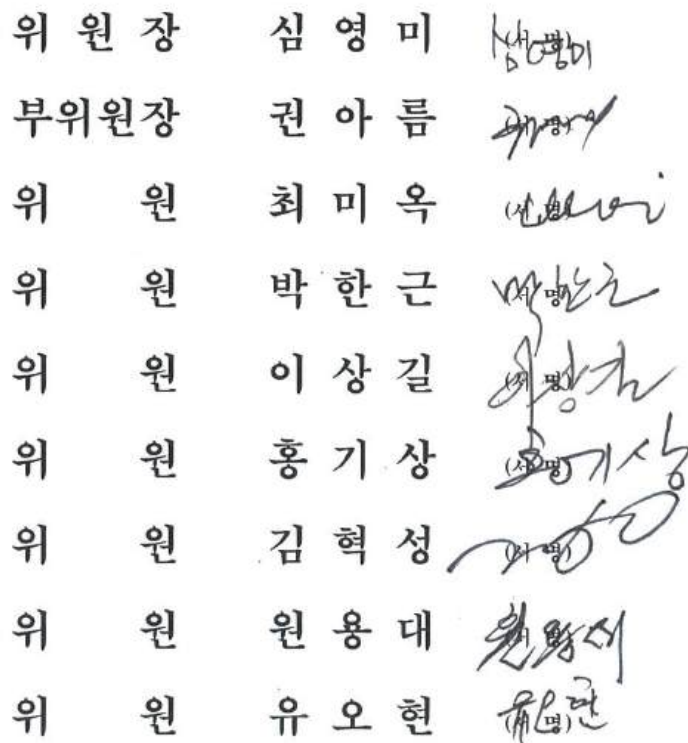 위 원 장 심 영 미 (서 명) 심영미
부위원장 권 아 름 (서 명)
위 원 최 미 옥 (서 명)
위 원 박 한 근 (서 명) 박한근
위 원 이 상 길 (서 명) 이상길
위 원 홍 기 상 (서 명) 홍기상
위 원 김 혁 성 (서 명)
위 원 원 용 대 (서 명)
위 원 유 오 현 (서 명)